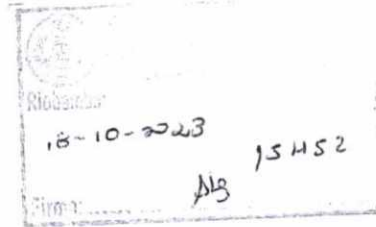 Riobamba:
18-10-2023
15H52
Firma:........